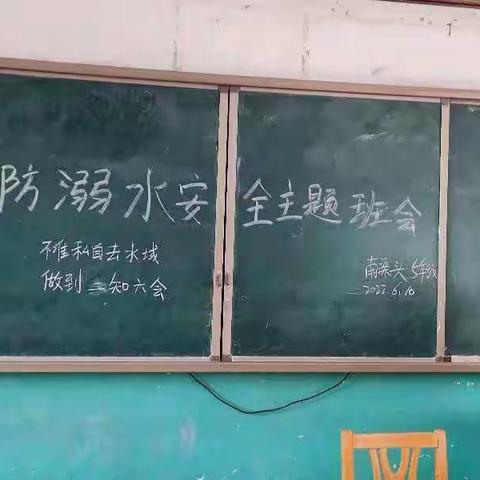 防溺水安全主题班会
不准私自去水域
做到二知六会
南梁头5年级
2022.6.10